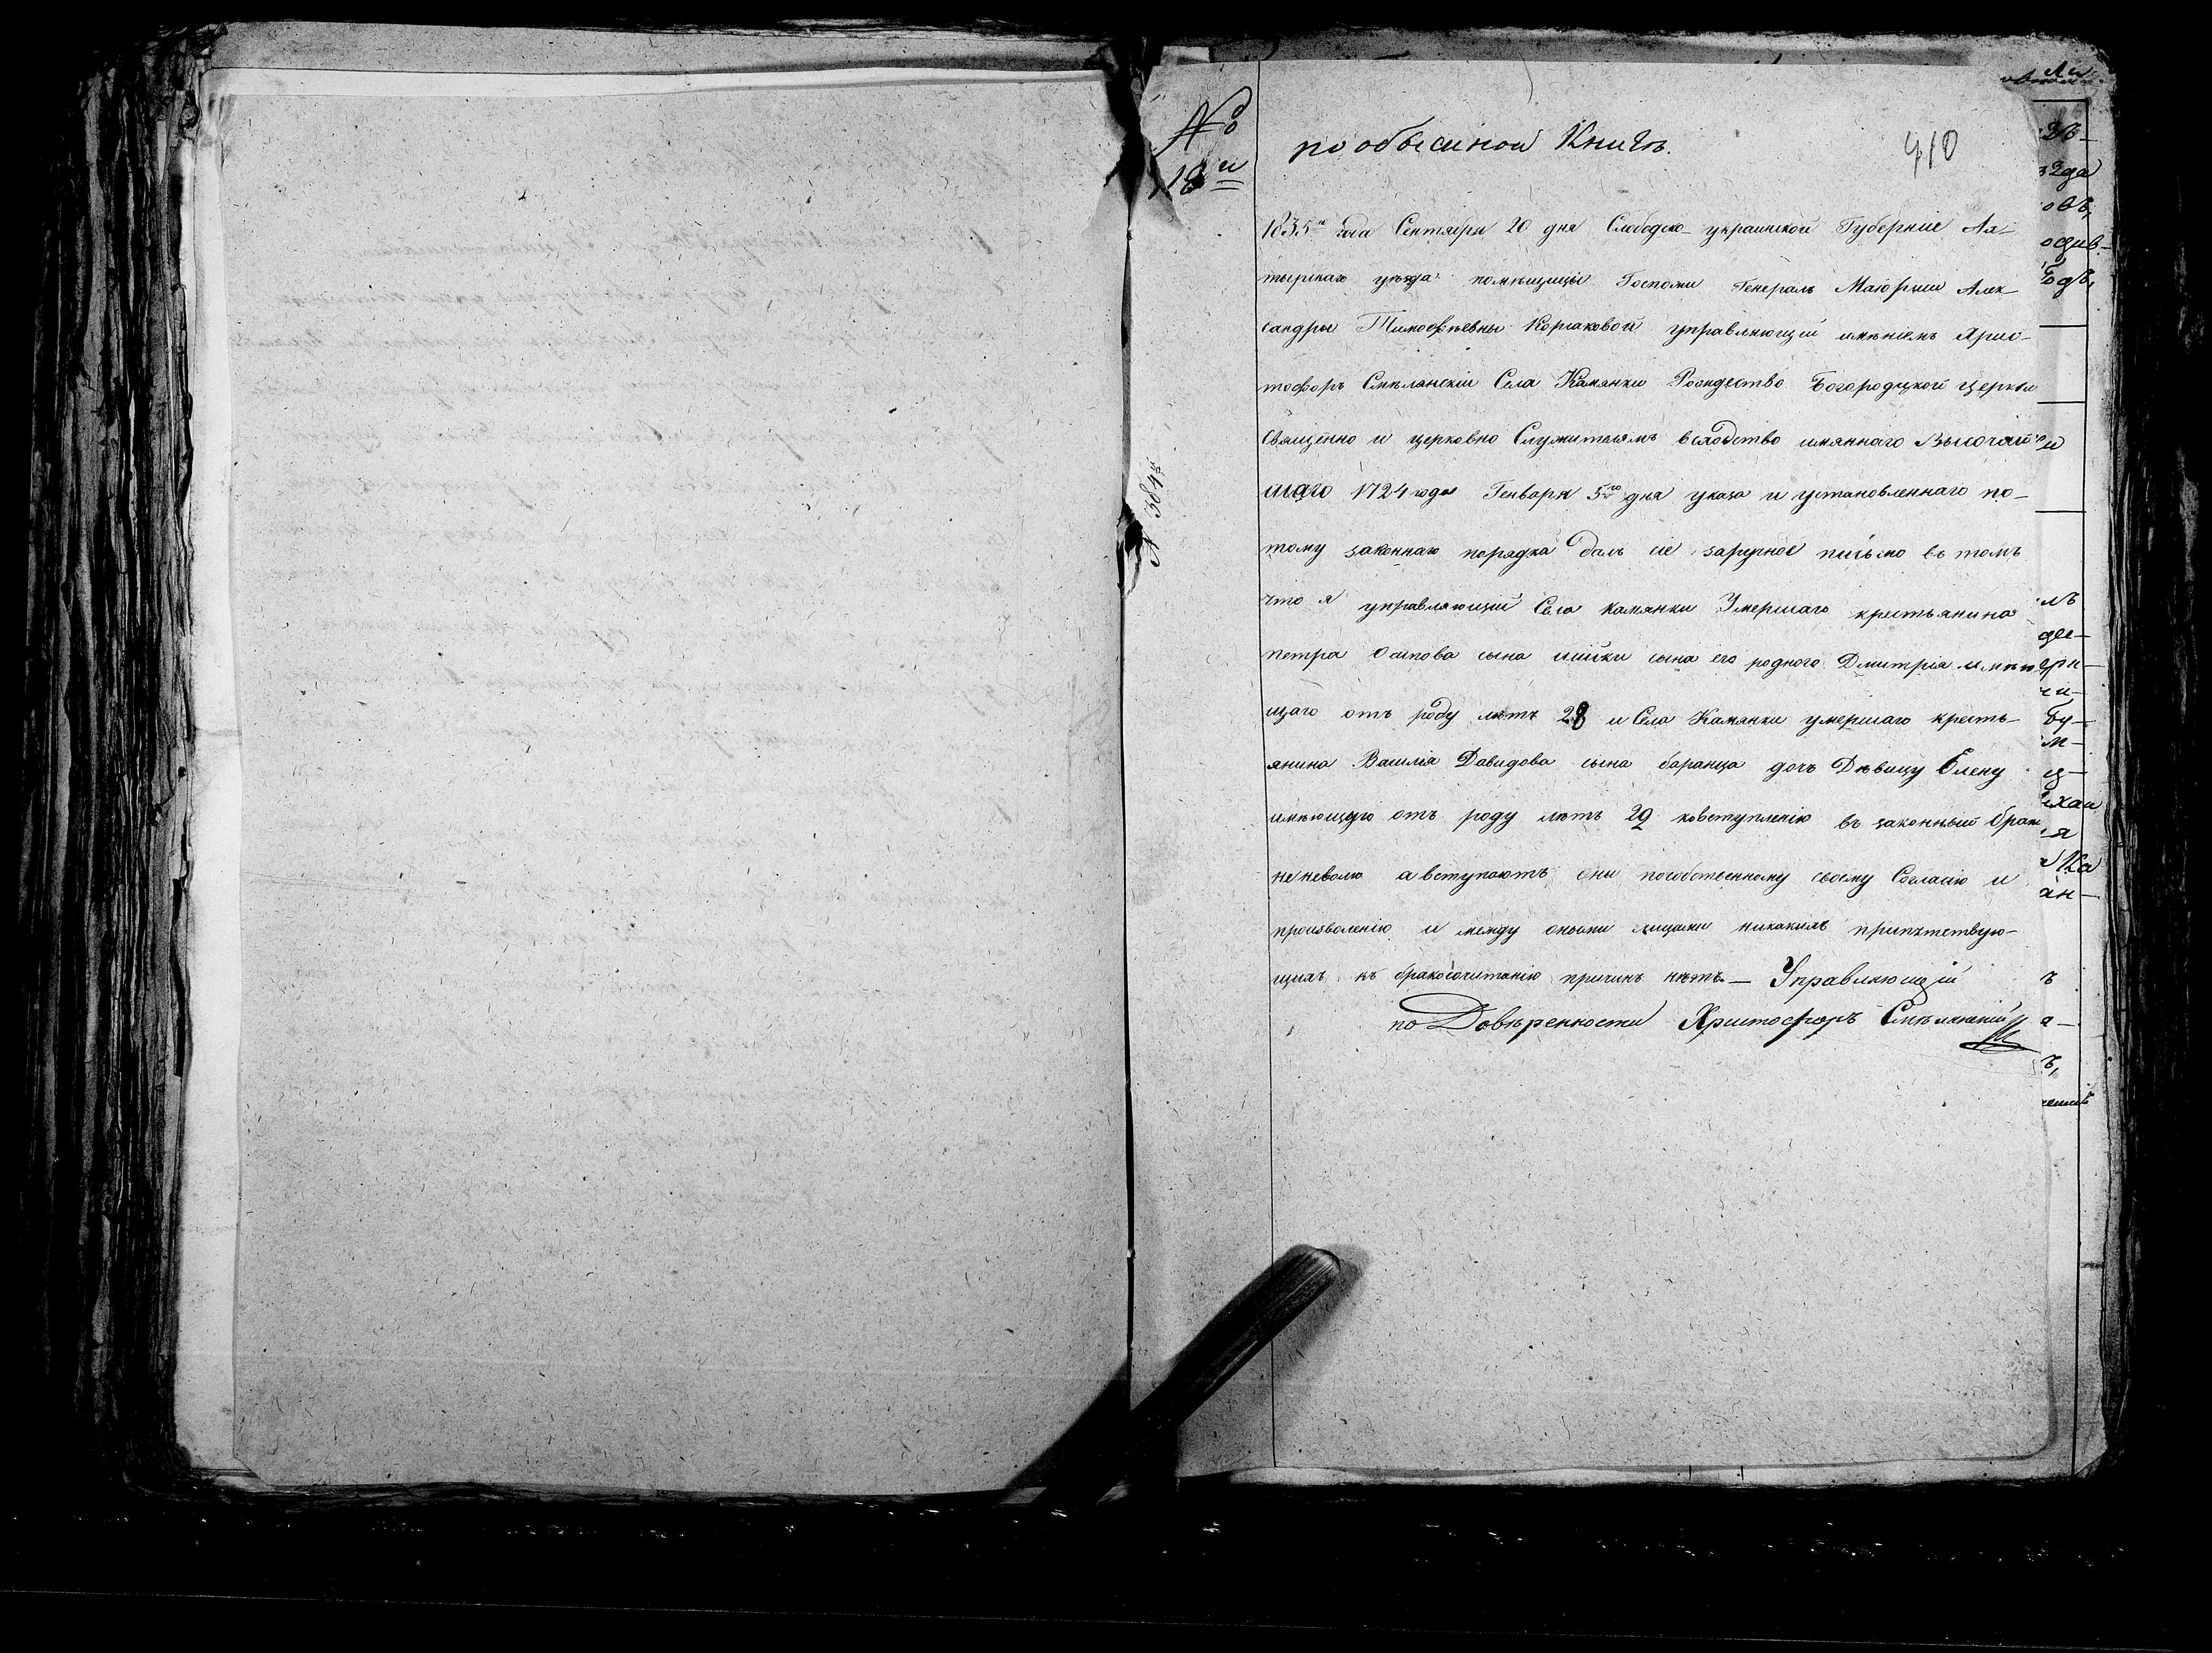 №
18й
по обысиной Книгѣ.
410
№ 384й
1835го года Сентября 20 дня Слободско-украинской Губерніе Ах-
тырскаго уѣзда помѣщицы Госпожи Генералъ Маіорши Алек-
сандры Тимофѣевны Корсаковой управляющій имѣніемъ Хрис-
тофоръ Смѣлянскій Села Камянки Рождество Богородцкой церкви
Священно и церковно Служителямъ вслѣдство имяннаго Высочай
шаго 1724 года Генваря 5го дня указа и установленнаго по-
тому законнаго порядка далъ сіе заручное письмо въ томъ
что я управляющій Села камянки Умершаго крестьянина
петра Осипова сына сына его родного Дмитрія имѣю
щаго отъ роду лѣтъ 28 и Села Камянки умершаго кресть-
янина Василія Давидова сына баранца дочь Дѣвицу Елену
имѣющую отъ роду лѣтъ 29 ковступленію въ законный бракъ
не неволю а вступаютъ они пособственному своему Согласію и
произволенію и между оными лицами никакихъ припятствую-
щихъ къ бракосочитанію причинъ нѣтъ.— Управляющій
по Довѣренности Христофоръ Смѣлянскій